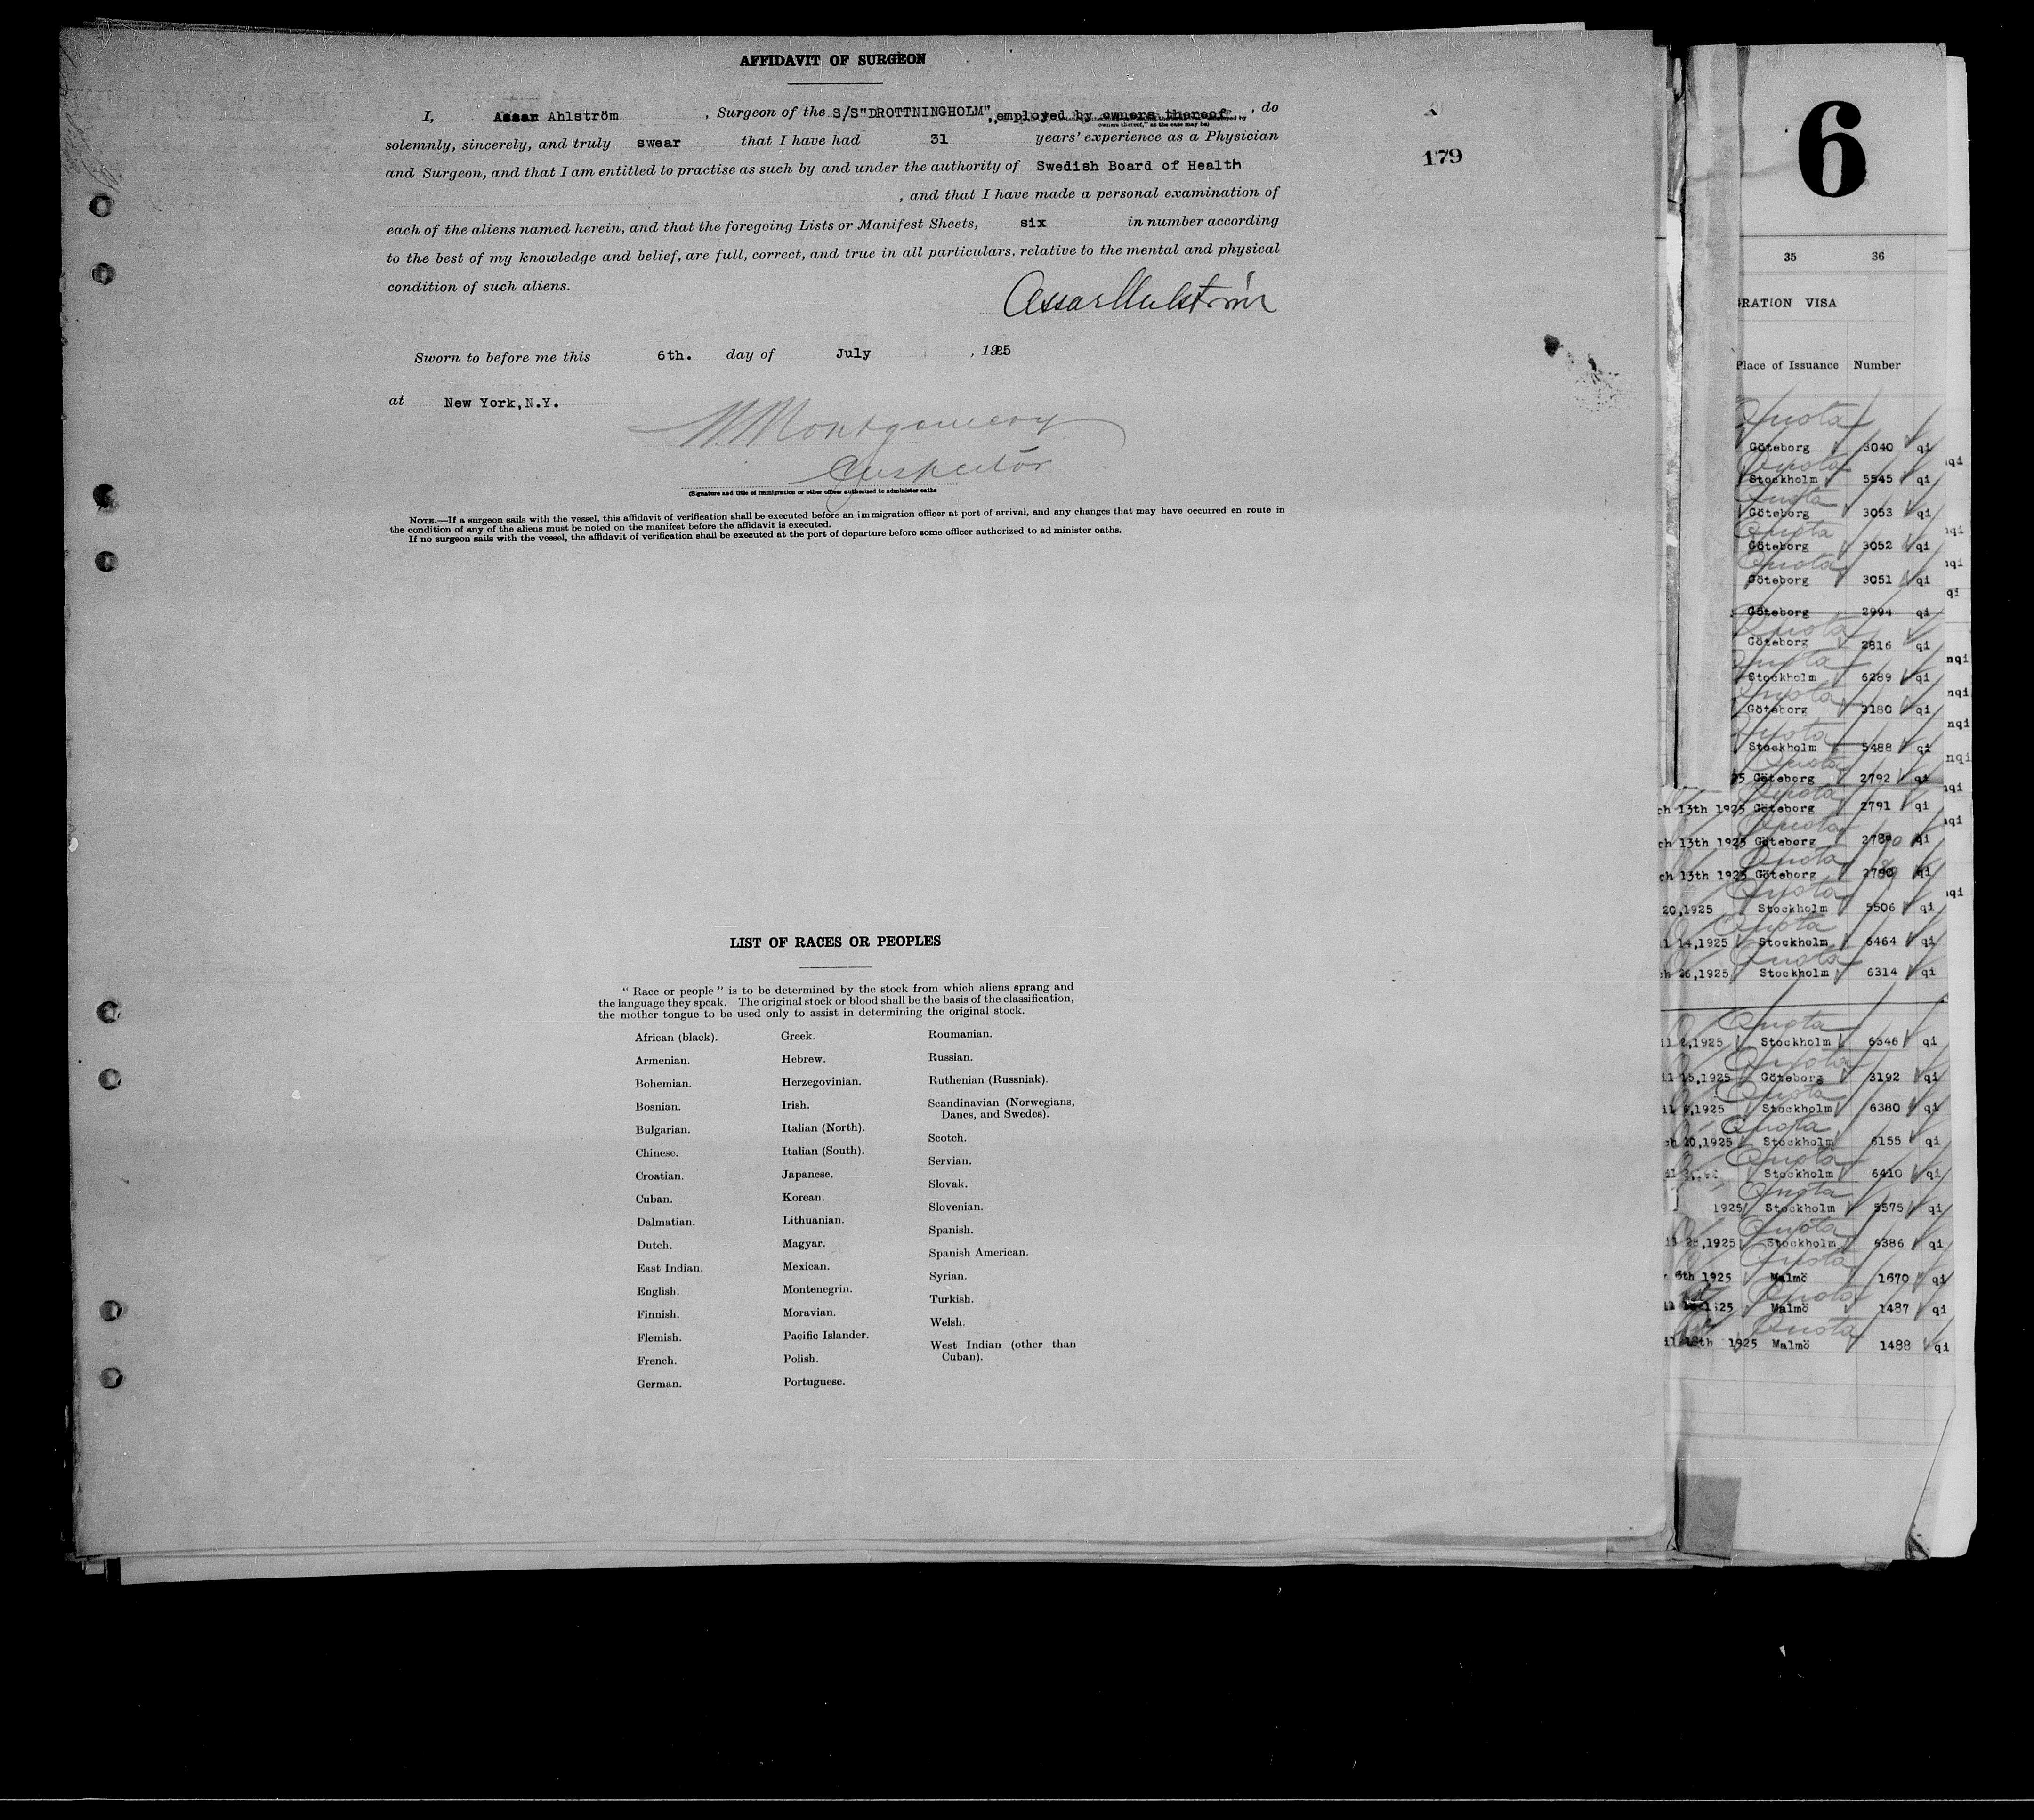 AFFIDAVIT OF SURGEON
I, Assar Ahlström, Surgeon of the S/S"DROTTNINGHOLM", employed by owners thereof, do
owners thereof," as the case may be)
solemnly, sincerely, and truly swear that I have had 31 years' experience as a Physician
and Surgeon, and that I am entitled to practise as such by and under the authority of Swedish Board of Health
, and that I have made a personal examination of
each of the aliens named herein, and that the foregoing Lists or Manifest Sheets, six in number according
to the best of my knowledge and belief, are full, correct, and true in all particulars, relative to the mental and physical
condition of such aliens.
Assar Ahlström
Sworn to before me this 6th. day of July, 1925
at New York,N.Y.
W Montgomery
Inspector
(Signature and title of immigration or other officer authorized to administer oaths
NOTE.—If a surgeon sails with the vessel, this affidavit of verification shall be executed before an immigration officer at port of arrival, and any changes that may have occurred en route in
the condition of any of the aliens must be noted on the manifest before the affidavit is executed.
If no surgeon sails with the vessel, the affidavit of verification shall be executed at the port of departure before some officer authorized to ad minister oaths.
179
LIST OF RACES OR PEOPLES
" Race or people " is to be determined by the stock from which aliens sprang and
the language they speak. The original stock or blood shall be the basis of the classification,
the mother tongue to be used only to assist in determining the original stock.
African (black).
Armenian.
Bohemian.
Bosnian.
Bulgarian.
Chinese.
Croatian.
Cuban.
Dalmatian.
Dutch.
East Indian.
English.
Finnish.
Flemish.
French.
German.
Greek.
Hebrew.
Herzegovinian.
Irish.
Italian (North).
Italian (South).
Japanese.
Korean.
Lithuanian.
Magyar.
Mexican.
Montenegrin.
Moravian.
Pacific Islander.
Polish.
Portuguese.
Roumanian.
Russian.
Ruthenian (Russniak).
Scandinavian (Norwegians,
Danes, and Swedes).
Scotch.
Servian.
Slovak.
Slovenian.
Spanish.
Spanish American.
Syrian.
Turkish.
Welsh.
West Indian (other than
Cuban).
6
35 36
RATION VISA
Place of Issuance Number
Quota
Göteborg 3040 qi
Quota
Stockholm 5545 qi
Quota
Göteborg 3053 qi
Quota
Göteborg 3052 qi
Quota
Göteborg 3051 qi
Göteborg 2994 qi
Quota
Göteborg 2816 qi
Quota
Stockholm 6289 qi
Quota
Göteborg 3180 qi
Quota
Stockholm 5488 qi
Quota
25 Göteborg 2792 qi
Quota
ch 13th 1925 Göteborg 2791 qi
Quota
ch 13th 1925 Göteborg qi
Quota
ch 13th 1925 Göteborg qi
Quota
20,1925 Stockholm 5506 qi
Quota
l 14,1925 Stockholm 6464 qi
Quota
ch 26,1925 Stockholm 6314 qi
Quota
,1925 Stockholm 6346 qi
Quota
il 15,1925 Göteborg 3192 qi
Quota
,1925 Stockholm 6380 qi
Quota
ch 20,1925 Stockholm 6155 qi
Quota
Stockholm 6410 qi
Quota
1925 Stockholm 5575 qi
Quota
,1925 Stockholm 6386 qi
Quota
6th 1925 Malmö 1670 qi
Quota
Malmö 1487 qi
Quota
il 18th 1925 Malmö 1488 qi